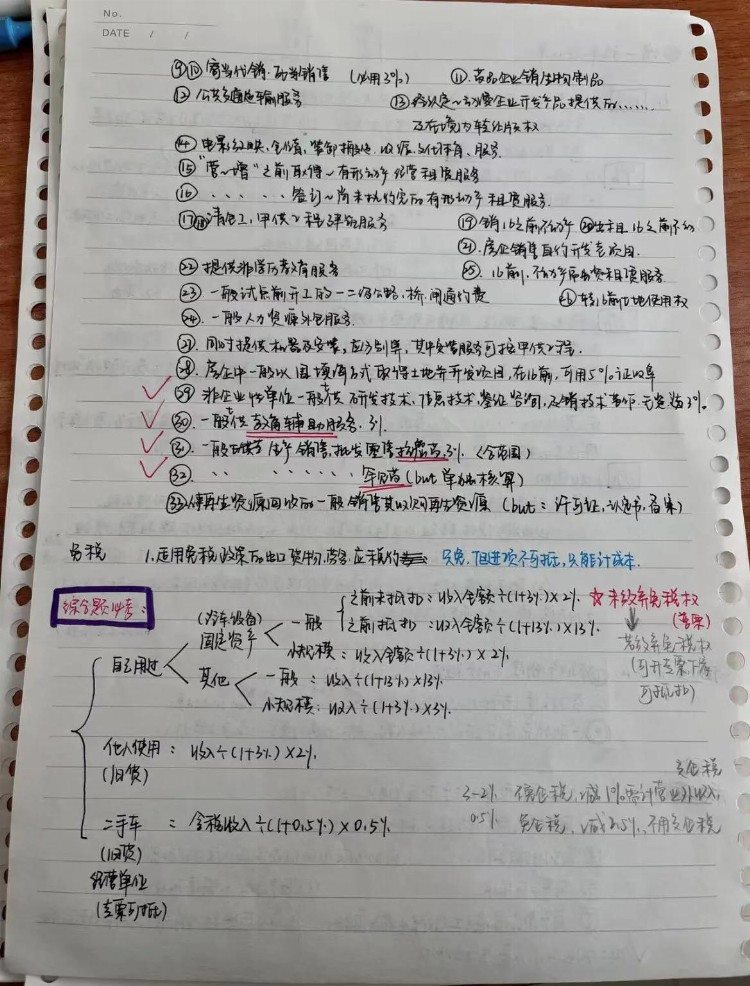 No.
DATE / /
⑨⑩ 寄售代销、死当销售 (必用3%) ⑪ 药品企业销生物制品
⑫ 公共交通运输服务 ⑬ 经认定~动漫企业开发产品提供的……
及在境内转让版权
⑭ 电影放映、仓储、装卸搬运、收派、文化体育、服务.
⑮ "营~增"之前取得~有形动产经营租赁服务
⑯ . . . . . 签订~尚未执行完的有形动产租赁服务.
⑰⑱ 清包工,甲供工程建筑服务 ⑲ 销16之前不动产 ⑳ 出租16之前不动
㉑. 房企销售自行开发老项目.
㉒ 提供非学历教育服务 ㉕ 16前,不动产融资租赁服务
㉓ 一般试点前开工的一二级公路、桥、闸通行费 ㉖ 转16前土地使用权
㉔. 一般人力资源外包服务.
㉗ 同时提供机器及安装,应分别算,其中安装服务可按甲供工程.
㉘ 房企中一般以围填海方式取得土地并开发项目,在16前,可用5%征收率
㉙ 非企业性单位一般供研发技术,信息技术,鉴证咨询,及销技术著作.无定资3%
㉚. 一般供教育辅助服务. 3%
㉛. 一般 生产销售、批发零售抗癌药,3% (全范围)
㉜. . . . . . . . . 罕见药 (but单独核算)
㉝ 从事再生资源回收的一般销售其收购再生资源 (but:许可证,认定书,备案)
免税 1. 适用免税政策的出口货物、劳务、应税行 只免,但进项不可抵,只能计成本.
综合题必考:
(汽车设备)
固定资产 一般 之前未抵扣: 收入全额÷(1+3%)×2% ☆未放弃免税权
(普票)
之前抵扣: 收入全额÷(1+13%)×13%
小规模: 收入全额÷(1+3%)×2% 若放弃免税权
(可开专票下家
可抵扣)
自己用过 其他 一般: 收入÷(1+13%)×13%
小规模: 收入÷(1+3%)×3%
他人使用: 收入÷(1+3%)×2%
(旧货)
3-2% 不 企税,减1%需计营业外收入, 交企税
0.5% 免企税,减2.5%,不用交企税
二手车: 含税收入÷(1+0.5%)×0.5%
(旧货)
经营单位
(专票可抵)